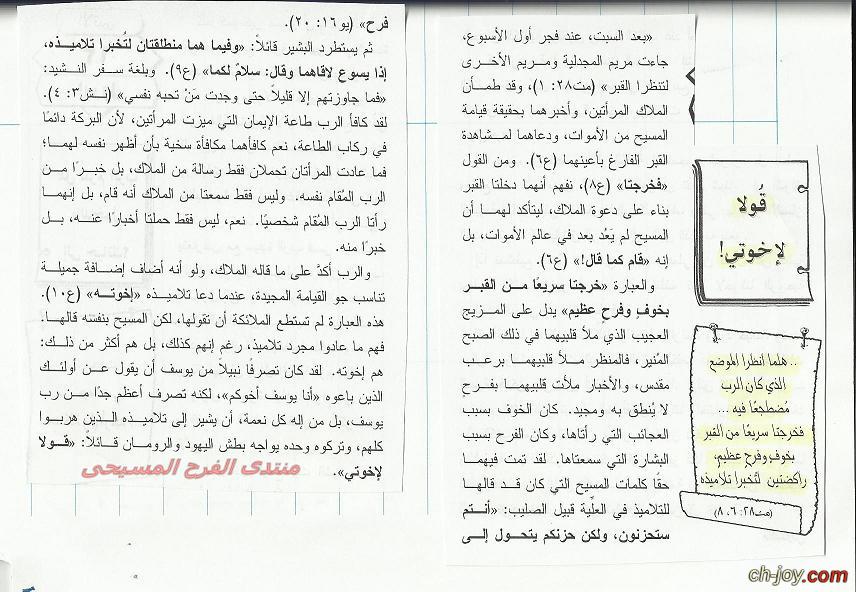 قُولا
لإخوتي!
.. هلما انظرا الموضع
الذي كان الرب
مُضطجعًا فيه ...
فخرجتا سريعًا من القبر
بخوفٍ وفرحٍ عظيمٍ،
راكضتين لتُخبرا تلاميذه
(مت٢٨: ٦، ٨)
«بعد السبت، عند فجر أول الأسبوع،
جاءت مريم المجدلية ومريم الأخرى
لتنظرا القبر» (مت٢٨: ١)، وقد طمأن
الملاك المرأتين، وأخبرهما بحقيقة قيامة
المسيح من الأموات، ودعاهما لمشاهدة
القبر الفارغ بأعينهما (ع٦). ومن القول
«فخرجتا» (ع٨)، نفهم أنهما دخلتا القبر
بناء على دعوة الملاك، ليتأكد لهما أن
المسيح لم يَعُد بعد في عالم الأموات، بل
إنه «قام كما قال!» (ع٦).
والعبارة «خرجتا سريعًا من القبر
بخوفٍ وفرحٍ عظيم» يدل على المزيج
العجيب الذي ملأ قلبيهما في ذلك الصبح
المُنير، فالمنظر ملأ قلبيهما برعب
مقدس، والأخبار ملأت قلبيهما بفرحٍ
لا يُنطق به ومجيد. كان الخوف بسبب
العجائب التي رأتاها، وكان الفرح بسبب
البشارة التي سمعتاها. لقد تمت فيهما
حقًا كلمات المسيح التي كان قد قالها
للتلاميذ في العلّية قبيل الصليب: «أنتم
ستحزنون، ولكن حزنكم يتحول إلى
فرح» (يو١٦: ٢٠).
ثم يستطرد البشير قائلاً: «وفيما هما منطلقتان لتُخبرا تلاميذه،
إذا يسوع لاقاهما وقال: سلامٌ لكما» (ع٩). وبلغة سفر النشيد:
«فما جاوزتهم إلا قليلاً حتى وجدت مَنْ تحبه نفسي» (نش٣: ٤).
لقد كافأ الرب طاعة الإيمان التي ميزت المرأتين، لأن البركة دائمًا
في ركاب الطاعة، نعم كافأهما مكافأة سخية بأن أظهر نفسه لهما؛
فما عادت المرأتان تحملان فقط رسالة من الملاك، بل خبرًا من
الرب المُقام نفسه. وليس فقط سمعتا من الملاك أنه قام، بل إنهما
رأتا الرب المُقام شخصيًا. نعم، ليس فقط حملتا أخبارًا عنه، بل
خبرًا منه.
والرب أكدَّ على ما قاله الملاك، ولو أنه أضاف إضافة جميلة
تناسب جو القيامة المجيدة، عندما دعا تلاميذه «إخوته» (ع١٠).
هذه العبارة لم تستطع الملائكة أن تقولها، لكن المسيح بنفسه قالها.
فهم ما عادوا مجرد تلاميذ، رغم إنهم كذلك، بل هم أكثر من ذلك:
هم إخوته. لقد كان تصرفًا نبيلاً من يوسف أن يقول عن أولئك
الذين باعوه «أنا يوسف أخوكم»، لكنه تصرف أعظم جدًا من رب
يوسف، بل من إله كل نعمة، أن يشير إلى تلاميذه الذين هربوا
كلهم، وتركوه وحده يواجه بطش اليهود والرومان قائلاً: «قولا
لإخوتي».
منتدى الفرح المسيحى
ch-joy.com